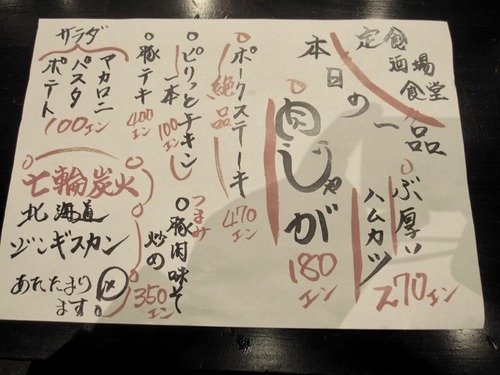 定食
酒場
食堂
本日の一品
ぶ厚い
ハムカツ
270エン
肉じゃが
180エン
ポークステーキ
絶品
470エン
ピリッとチキン
一本
100エン
豚テキ
400エン
つまみ
豚肉味そ
炒め
350エン
サラダ
マカロニ
パスタ
ポテト
100エン
七輪炭火
北海道
ジンギスカン
あたたまり
ます